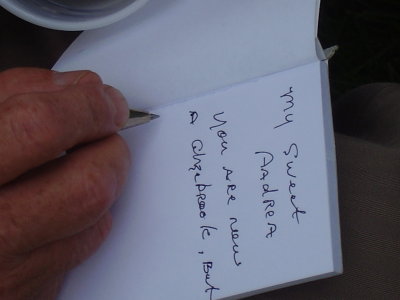 My Sweet
Andrea
You are now
a Ghzebrook, But